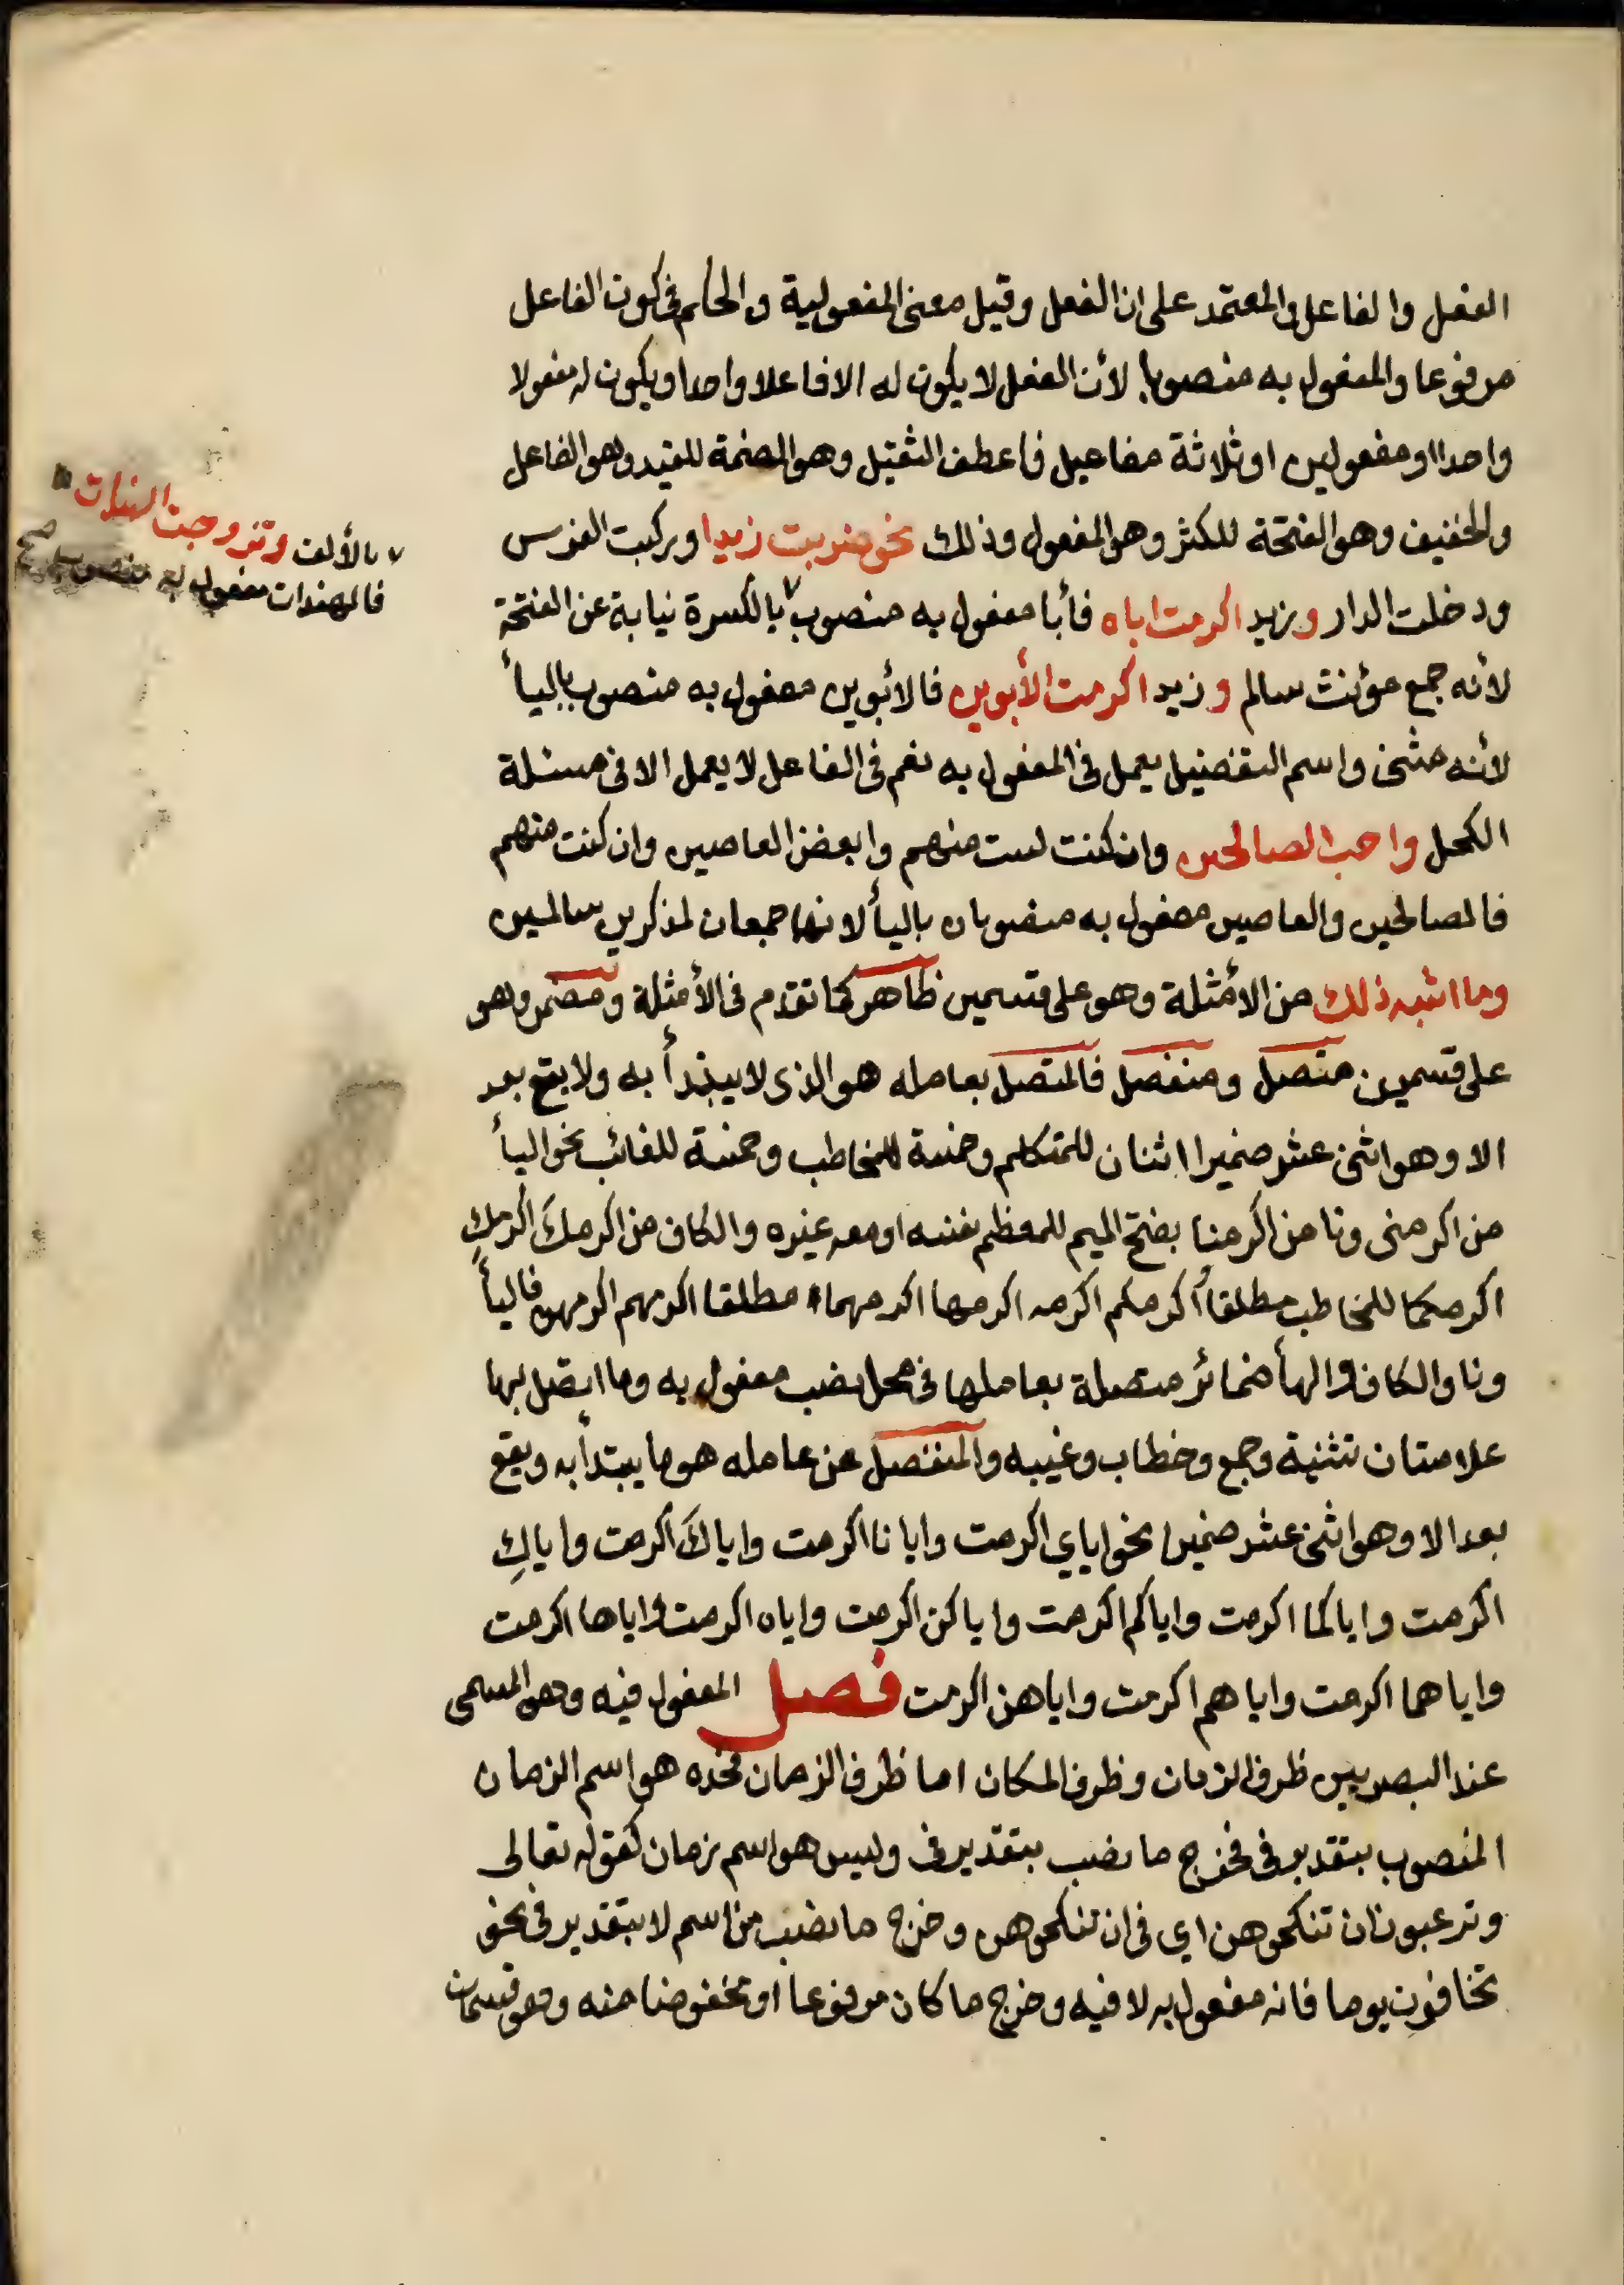 الفعل والفاعل والمعتمد على ان الفعل وقيل معنى المفعولية والحاكم فى كون الفاعل
مرفوعا والمفعول به منصوبا لأن الفعل لا يكون له الا فاعلا واحدا ويكون له مفعولا
واحدا او مفعولين او ثلاثة مفاعيل فاعطف الثقيل وهو الضمة للقيد وهو الفاعل
والخفيف وهو الفتحة للكثر وهو المفعول وذلك نحو ضربت زيدا وركبت الفرس
ودخلت الدار وزيد اكرمت اباه فأبا مفعول به منصوب ٧ بالكسرة نيابة عن الفتحة
٧ بالألف وتزوجت الهندات
فالهندات مفعول به منصوب
صح
لأنه جمع مؤنث سالم وزيد اكرمت الأبوين فالأبوين مفعول به منصوب باليأ
لأنه مثنى واسم التفضيل يعمل فى المفعول به نعم فى الفاعل لا يعمل الا فى مسئلة
الكحل واحب الصالحين وان كنت لست منهم وابغض العاصين وان كنت منهم
فالصالحين والعاصين مفعول به منصوبان باليأ لانهما جمعان لمذكرين سالمين
وما اشبه ذلك من الأمثلة وهو على قسمين ظاهر كما تقدم فى الأمثلة ومضمر وهو
على قسمين متصل ومنفصل فالمتصل بعامله هو الذى لا يبتدأ به ولا يقع بعد
الا وهو اثنى عشر ضميرا اثنان للمتكلم وخمسة للمخاطب وخمسة للغائب نحو اليأ
من اكرمنى ونا من اكرمنا بفتح الميم للمعظم نفسه او معه غيره والكاف من اكرمكَ اكرمكِ
اكرمكما للمخاطب مطلقا أكرمكم اكرمه اكرمها اكرمهما مطلقا اكرمهم اكرمهن فاليأ
ونا والكاف والهأ ضمائر متصلة بعاملها فى محل نصب مفعول به وما اتصل بها
علامتان تثنية وجمع وخطاب وغيبه والمنفصل عن عامله هو ما يبتدأ به ويقع
بعد الا وهو اثنى عشر ضميرا نحو اياي اكرمت وايانا اكرمت واياكَ اكرمت واياكِ
اكرمت واياكما اكرمت واياكم اكرمت واياكن اكرمت واياه اكرمت واياها اكرمت
واياهما اكرمت واياهم اكرمت واياهن اكرمت فصل المفعول فيه وهو المسمى
عند البصريين ظرف الزمان وظرف المكان اما ظرف الزمان فحده هو اسم الزمان
المنصوب بتقدير فى فخرج ما نصب بتقدير فى وليس هو اسم زمان كقوله تعالى
وترغبون ان تنكحوهن اي فى ان تنكحوهن وخرج ما نصب من اسم لا بتقدير فى نحو
تخافون يوما فانه مفعول به لا فيه وخرج ما كان مرفوعا او مخفوضا منه وهو قسمان